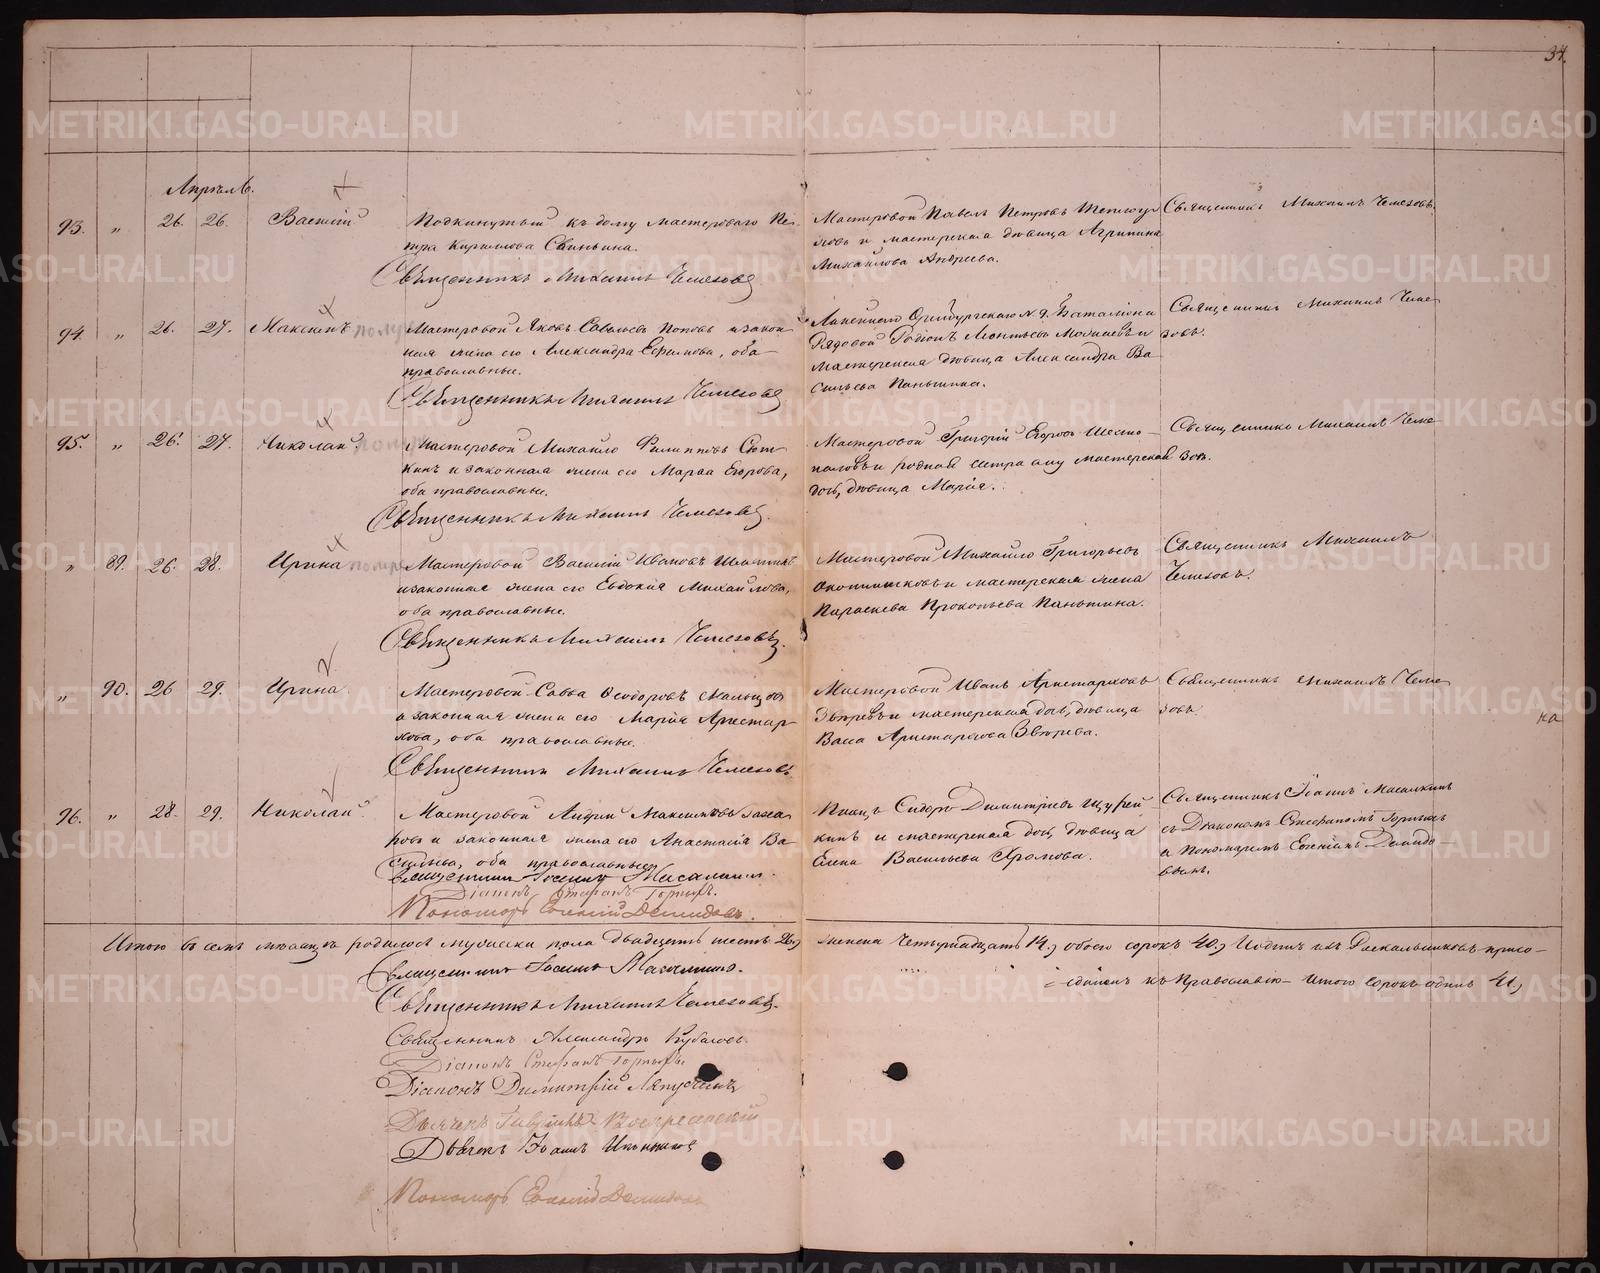 34.
Апрѣль.
93. „ 26. 26. Василій Подкинутый къ дому мастероваго Пе-
тра Кирилова Свиньина.
Священникъ Михаилъ Чемезовъ
Мастеровой Павелъ Петровъ
и мастерская дѣвица Агрипина
Михайлова Андреева.
Священникъ Михаилъ Чемезовъ.
94. „ 26. 27. Максимъ Мастеровой Яковъ Савельевъ Поповъ и закон-
ная жена его Александра Ефимова, оба
православные.
Священникъ Михаилъ Чемезовъ
Линейнаго Оренбургскаго № 9. Баталіона
Рядовой Родіонъ Леонтьевъ и
мастерская дѣвица Александра Ва-
сильева Паньшина.
Священникъ Михаилъ Чеме-
зовъ.
95. „ 26. 27. Николай Мастеровой Михайло Филипповъ
и законная жена его Марѳа Егорова,
оба православные.
Священникъ Михаилъ Чемезовъ.
Мастеровой Григорій Егоровъ Шесто-
паловъ и родная сестра ему мастерская
дочь, дѣвица Марія.
Священникъ Михаилъ Чеме-
зовъ.
„ 89. 26. 28. Ирина Мастеровой Василій Ивановъ
и законная жена его Евдокія Михайлова,
оба православные.
Священникъ Михаилъ Чемезовъ.
Мастеровой Михайло Григорьевъ
и мастерская жена
Параскева Прокопьева Паньшина.
Священникъ Михаилъ
Чемезовъ.
„ 90. 26 29. Ирина Мастеровой Савва Ѳеодоровъ
и законная жена его Марія Аристар-
хова, оба православные.
Священникъ Михаилъ Чемезовъ
Мастеровой Иванъ Аристарховъ
Звѣревъ и мастерская дочь, дѣвица
Васса Аристархова Звѣрева.
Священникъ Михаилъ Чеме-
зовъ.
на
96. „ 28. 29. Николай Мастеровой Андрей Максимовъ Заха-
ровъ и законная жена его Анастасія Ва-
сильева, оба православные
Священникъ Іоаннъ
Діаконъ Стефанъ
Пономарь Евгеній Демидовъ.
Писецъ Сидоръ Димитріевъ Щурей-
кинъ и мастерская дочь, дѣвица
Елена Васильева Хромова.
Священникъ Іоаннъ
съ Діакономъ Стефаномъ
и Пономаремъ Евгеніемъ Демидо-
вымъ.
Итого въ семъ мѣсяцѣ родилось мужеска пола двадцать шесть 26,
женска четырнадцать 14, обоего сорокъ 40, и одинъ изъ Раскольниковъ присо-
единенъ къ Православію — Итого сорокъ одинъ 41,
Священникъ Іоаннъ
Священникъ Михаилъ Чемезовъ.
Священникъ Александръ
Діаконъ Стефанъ
Діаконъ Димитрій Ляпустинъ
Дьячекъ
Дьячекъ Іоаннъ
Пономарь Евгеній Демидовъ
METRIKI.GASO-URAL.RU